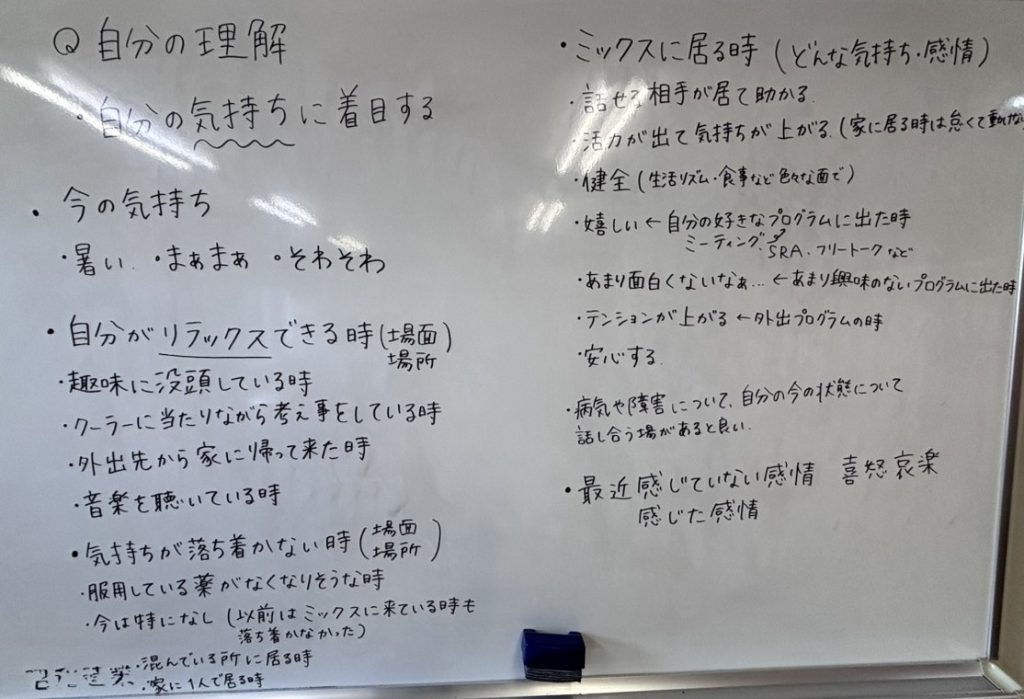 Q 自分の理解
・自分の気持ちに着目する
・今の気持ち
・暑い ・まぁまぁ ・そわそわ
・自分がリラックスできる時(場面
場所)
・趣味に没頭している時
・クーラーに当たりながら考え事をしている時
・外出先から家に帰って来た時
・音楽を聴いている時
・気持ちが落ち着かない時(場面
場所)
・服用している薬がなくなりそうな時
・今は特になし(以前はミックスに来ている時も
落ち着かなかった)
・混んでいる所に居る時
・家に1人で居る時
・ミックスに居る時(どんな気持ち・感情)
・話せる相手が居て助かる.
・活力が出て気持ちが上がる.(家に居る時は怠くて動けな
・健全(生活リズム・食事など色々な面で)
・嬉しい←自分の好きなプログラムに出た時
ミーティング、SRA、フリートークなど
・あまり面白くないなぁ…←あまり興味のないプログラムに出た時
・テンションが上がる←外出プログラムの時
・安心する.
・病気や障害について、自分の今の状態について
話し合う場があると良い.
・最近感じていない感情 喜怒哀楽
感じた感情